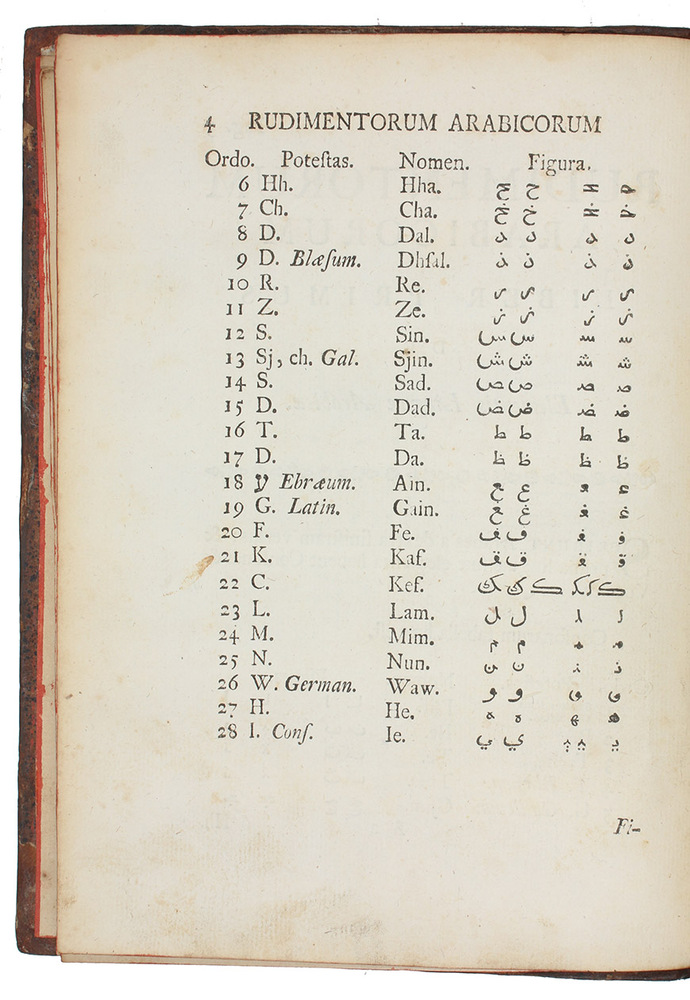 4 RUDIMENTORUM ARABICORUM
Ordo. Poteſtas. Nomen. Figura.
6 Hh. Hha. ﺢ ح ﺤ ﺣ
7 Ch. Cha. ﺦ خ ﺨ ﺧ
8 D. Dal. ﺪ د ﺪ د
9 D. Blæſum. Dhſal. ﺬ ذ ﺬ ذ
10 R. Re. ﺮ ر ﺮ ر
11 Z. Ze. ﺰ ز ﺰ ز
12 S. Sin. ﺲ س ﺴ ﺳ
13 Sj, ch. Gal. Sjin. ﺶ ش ﺸ ﺷ
14 S. Sad. ﺺ ص ﺼ ﺻ
15 D. Dad. ﺾ ض ﻀ ﺿ
16 T. Ta. ﻂ ط ﻄ ﻃ
17 D. Da. ﻆ ظ ﻈ ﻇ
18 ע Ebræum. Ain. ﻊ ع ﻌ ﻋ
19 G. Latin. Gain. ﻎ غ ﻐ ﻏ
20 F. Fe. ﻒ ف ﻔ ﻓ
21 K. Kaf. ﻖ ق ﻘ ﻗ
22 C. Kef. ﻚ ك ﻛ ﻜ
23 L. Lam. ﻞ ل ﻠ ﻟ
24 M. Mim. ﻢ م ﻤ ﻣ
25 N. Nun. ﻦ ن ﻨ ﻧ
26 W. German. Waw. ﻮ و ﻮ و
27 H. He. ﻪ ه ﻬ ﻫ
28 I. Conſ. Ie. ﻲ ي ﻴ ﻳ
Fi-